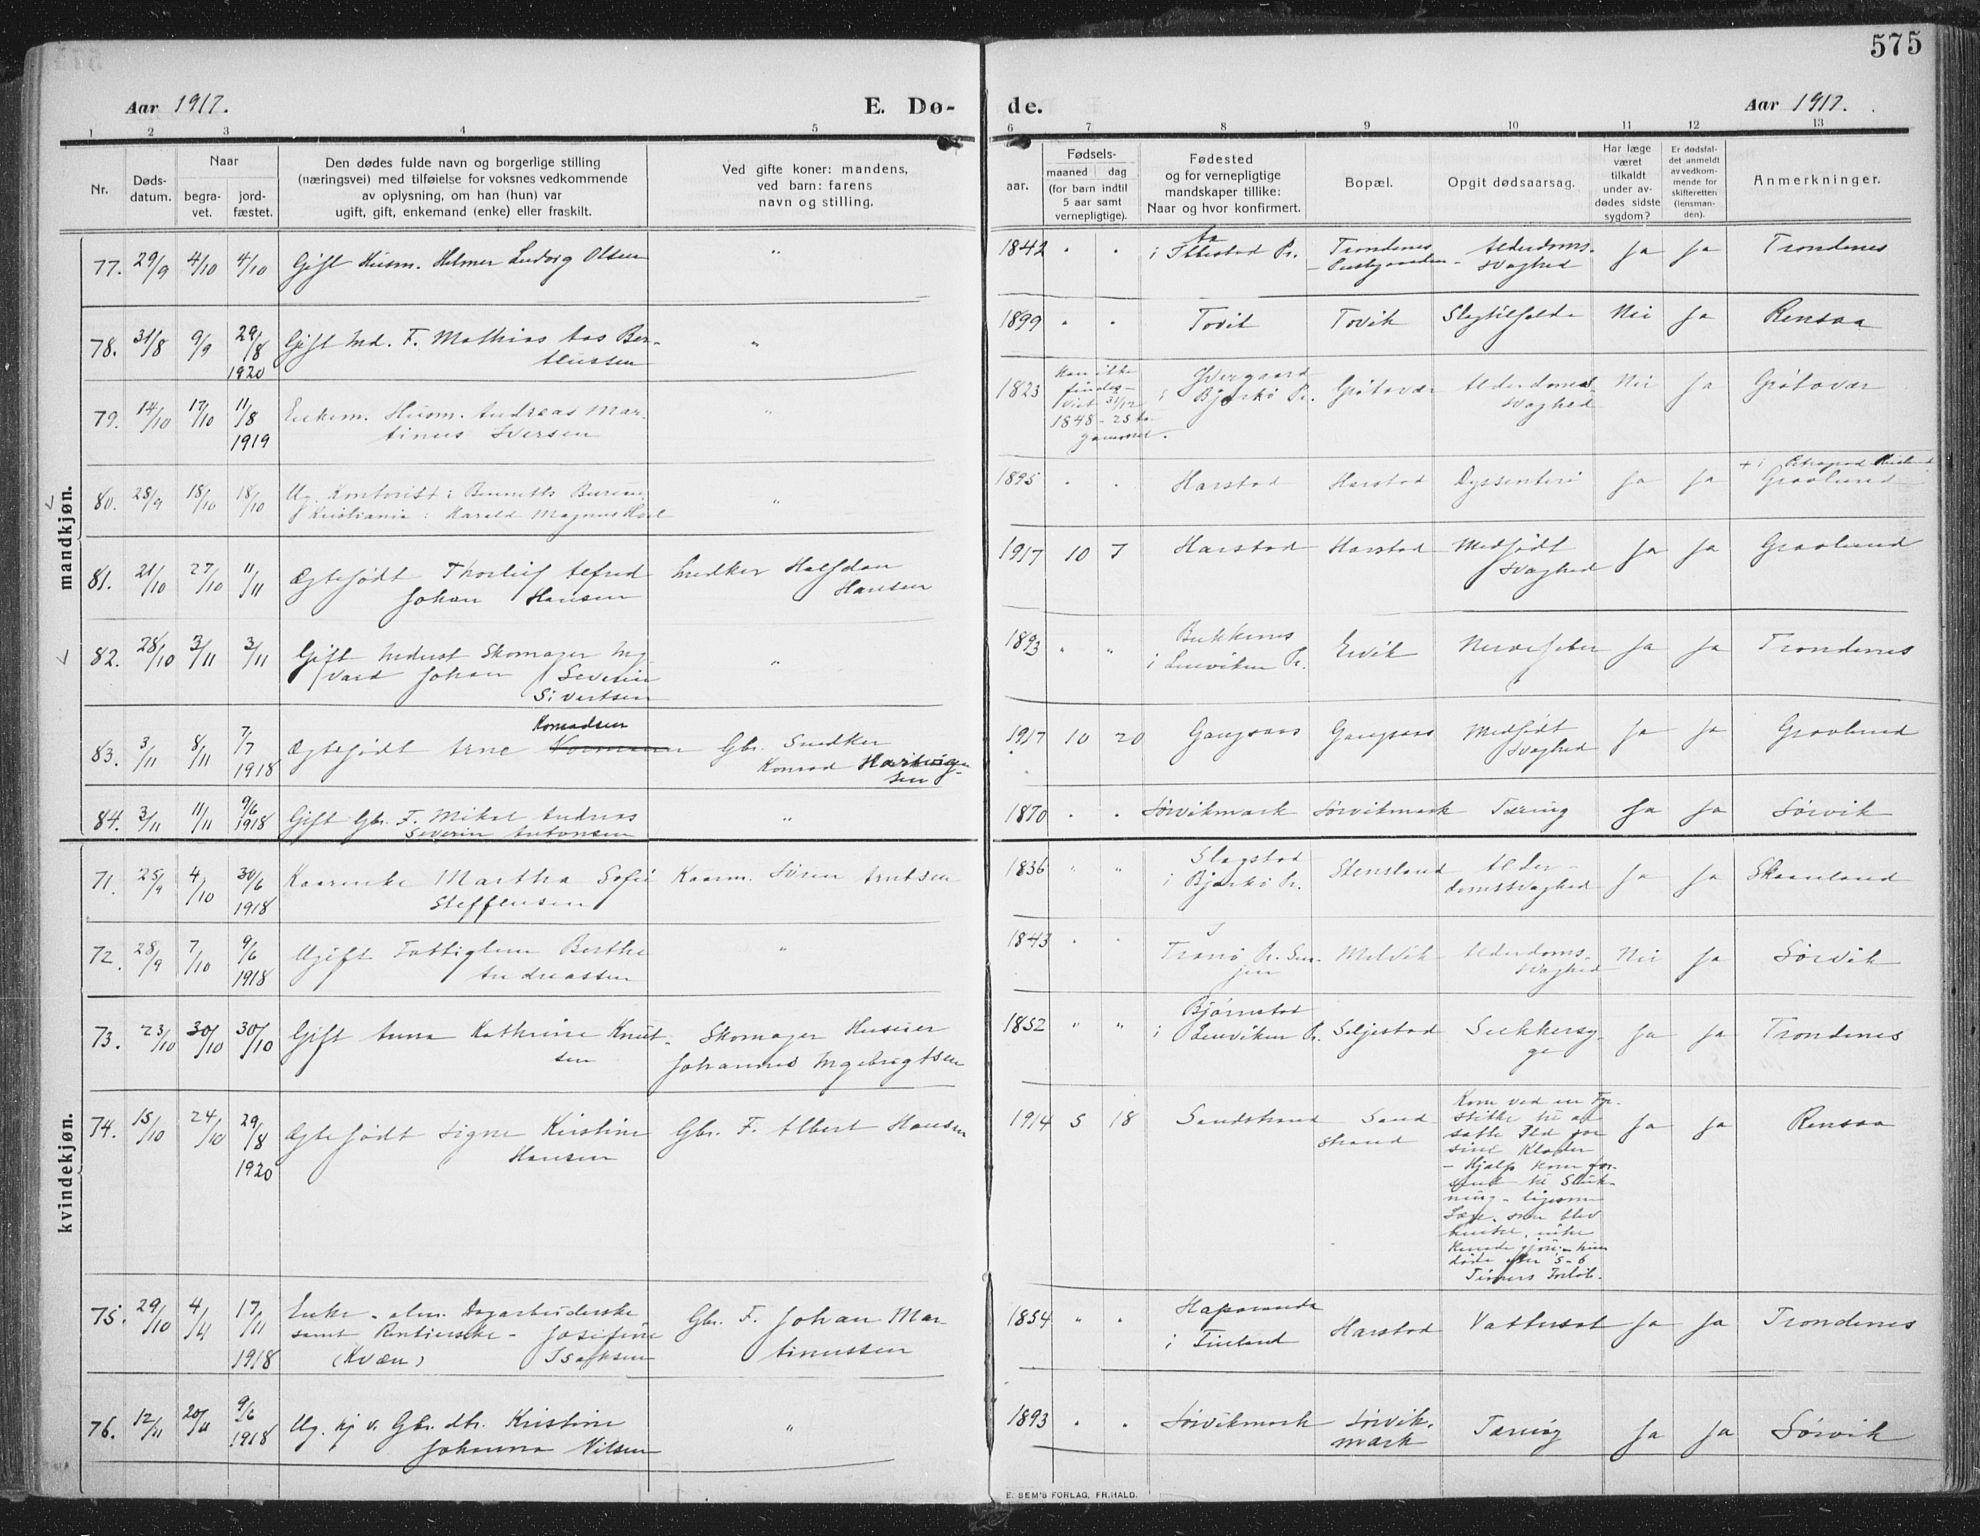 575
Aar 1917.
E. Dø-
de.
Aar 1917.
1 2 3 4 5 6 7 8 9 10 11 12 13
Nr.
Døds-
datum.
Naar
begra-
vet.
jord-
fæstet.
Den dødes fulde navn og borgerlige stilling
(næringsvei) med tilføielse for voksnes vedkommende
av oplysning, om han (hun) var
ugift, gift, enkemand (enke) eller fraskilt.
Ved gifte koner: mandens,
ved barn: farens
navn og stilling.
aar.
Fødsels-
maaned dag
(for barn indtil
5 aar samt
vernepligtige).
Fødested
og for vernepligtige
mandskaper tillike:
Naar og hvor konfirmert.
Bopæl.
Opgit dødsaarsag.
Har læge
været
tilkaldt
under av-
dødes sidste
sygdom?
Er dødsfal-
det anmeldt
av vedkom-
mende for
skifteretten
(lensman-
den).
Anmerkninger.
mandkjøn.
77. 29/9 4/10 4/10 Gift Husm. Helmer Ludvig Olsen " 1842 " " i Ibbestad Pr. Trondenes Alderdoms- Ja Ja Trondenes
- Prestgaarden - svaghed
78. 31/8 9/9 29/8 Gift Ind. F. Mathias Aas Ber- " 1899 " " Tovik Tovik Slagtilfælde Nei Ja Rensaa
1920 thussen
79. 14/10 17/10 11/8 Enkem. Husm. Andreas Mar- " 1823 Kan ikke Grøtavær Alderdoms Nei Ja Grøtavær
1919 tinus Iversen
findes -
vist 31/12 i Bjarkø Pr. svaghed
1848 - 25 Aar
gammel.
80. 28/9 18/10 18/10 Ug. Kontorist i Bennetts Bureau " 1895 " " Harstad Harstad Dyssenteri Ja Ja Graalund
i Kristiania: Harald Magnus
81. 21/10 27/10 11/11 Ægtefødt Thorleif Alfred Snedker Halfdan 1917 10 7 Harstad Harstad Medfødt Ja Ja Graalund
Johan Hansen Hansen svaghed
82. 28/10 3/11 3/11 Gift Inderst Skomager Ing- " 1893 " " Bukkenes Ervik Nervefeber Ja Ja Trondenes
vard Johan Severin i Lenviken Pr.
Sivertsen
83. 3/11 8/11 7/7 Konradsen
1918 Ægtefødt Arne Gbr. Snedker 1917 10 20 Gangsaas Gangsaas Medfødt Ja Ja Graalund
Konrad Hartvig- svaghed
sen
84. 3/11 11/11 9/6 Gift Gbr. F. Mikal Andreas " 1870 " " Sørvikmark Sørvikmark Tæring Ja Ja Sørvik
1918 Severin Antonsen
kvindekjøn.
71. 25/9 4/10 30/6 Kaarenke Martha Sofie Kaarm. Søren Arntsen 1836 " " Slagstad Stensland Alder- Ja Ja Skaanland
1918 Steffensen i Bjarkø Pr. domssvaghed
72. 28/9 7/10 9/6 Ugift Fattiglem Berthe " 1843 " " i Melvik Alderdoms- Nei Ja Sørvik
1918 Andreassen Tranø Pr. Sen- svaghed
jen
73. 23/10 30/10 30/10 Gift Anna Kathrine Knut- Skomager Huseier 1852 " " Bjørnstad Seljestad Sukkersy- Ja Ja Trondenes
sen Johannes Ingebrigtsen i Lenviken Pr. ge
74. 15/10 24/10 29/8 Ægtefødt Signe Kirstine Gbr. F. Albert Hansen 1914 5 18 Sandstrand Sand Ja Ja Rensaa
1920 Hansen strand
Kom ved en Fyr-
stikke til at
sætte Ild paa
sine Klæder
- Hjælp kom for
sent til Sluk-
ning - ligesom
Læge, som blev
hentet, intet
kunde gjøre - hun
døde efter 5-6
Timers Forløb.
75. 29/10 4/11 17/11 Enke - alm. Dagarbeiderske Gbr. F. Johan Mar- 1854 " " Haparanda Harstad Vattersot Ja Ja Trondenes
1918 samt Rentierske - Josefine tinussen i Finland
(Kvæn) Isaksen
76. 12/11 20/11 9/6 Ug. hj v. Gbr. dtr. Kristine " 1893 " " Sørvikmark Sørvik- Tæring Ja Ja Sørvik
1918 Johanna Nilsen mark
E. SEM'S FORLAG, FR.HALD.